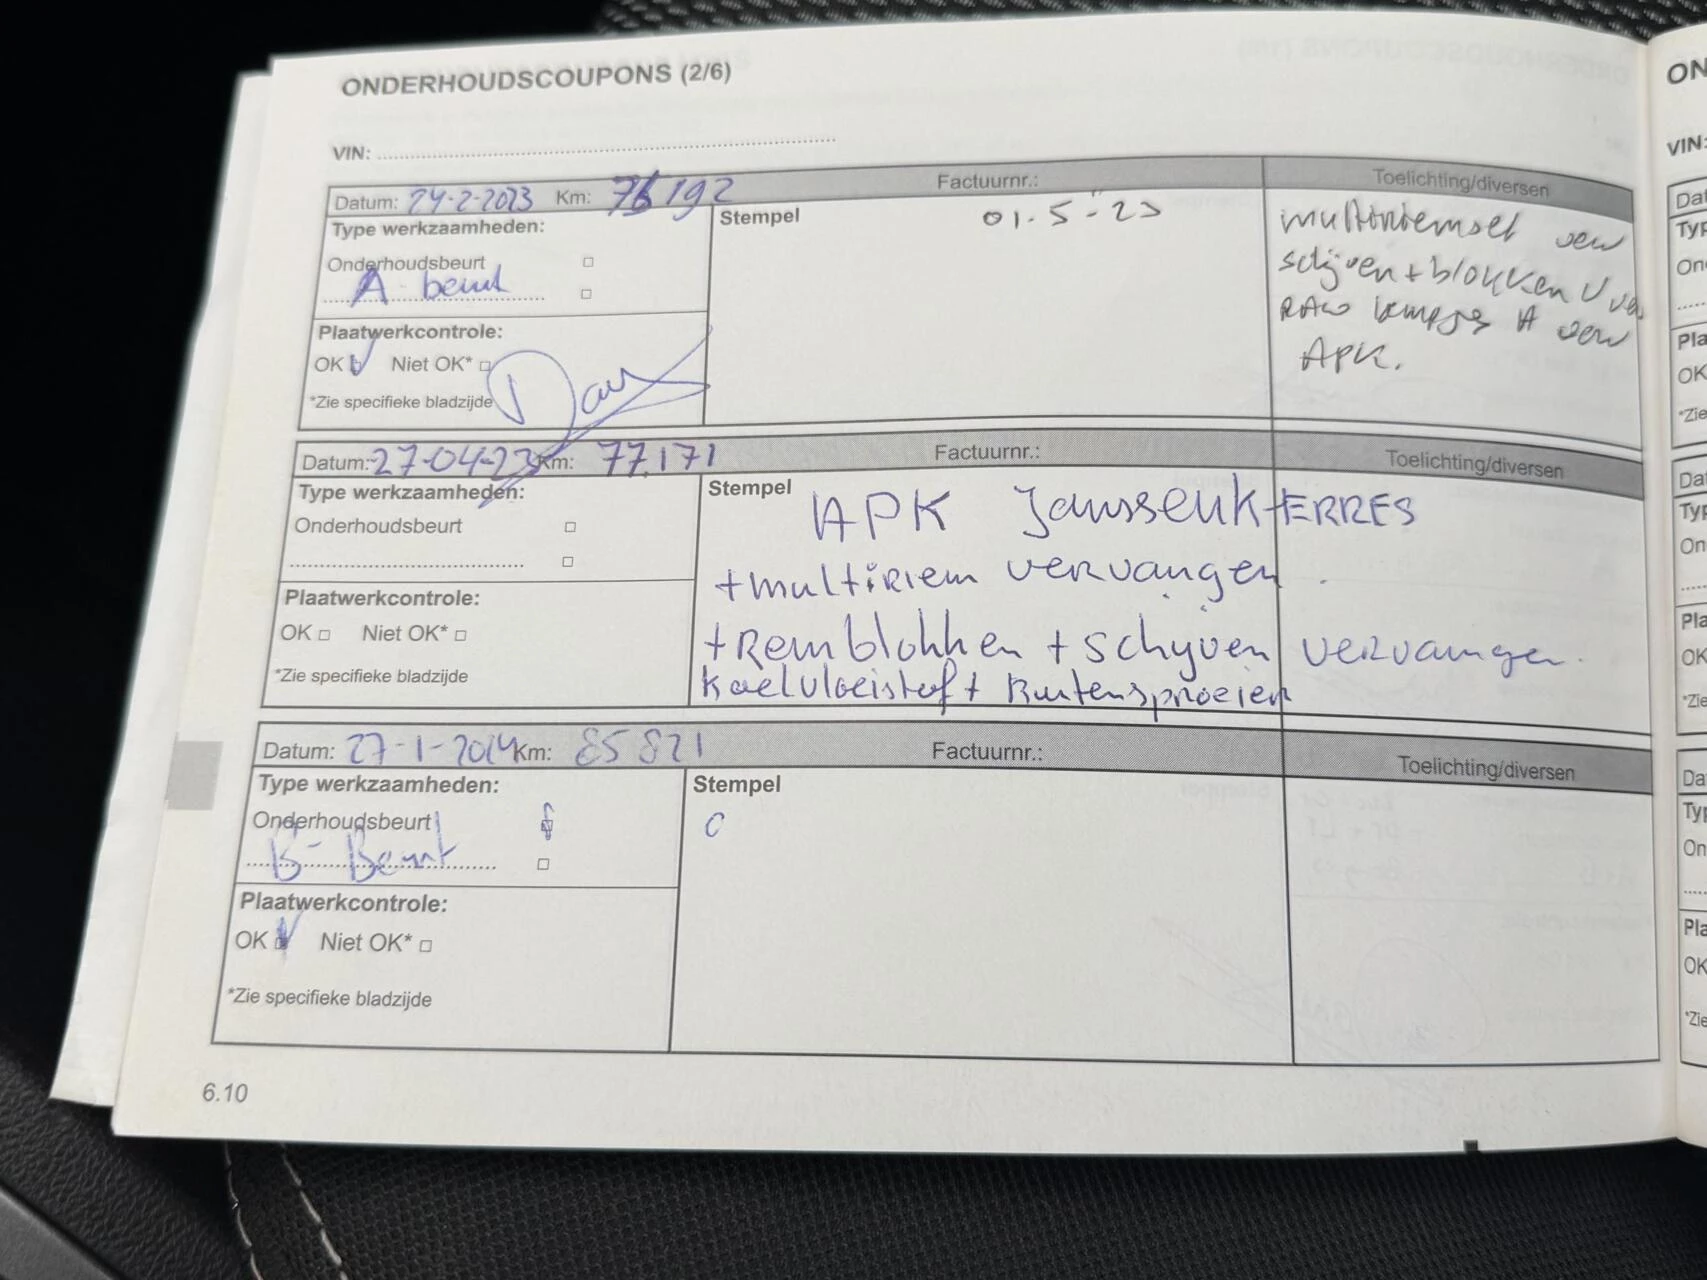 ONDERHOUDSCOUPONS (2/6)
VIN:
Datum: 24-2-2023 Km: 76192 Factuurnr.: Toelichting/diversen
Type werkzaamheden:
Onderhoudsbeurt
A beurt
Plaatwerkcontrole:
OK Niet OK*
*Zie specifieke bladzijde
Stempel
01-5-23
schijven + blokken V
lampjes A
APK.
Datum: 27-04-23 Km: 77.171 Factuurnr.: Toelichting/diversen
Type werkzaamheden:
Onderhoudsbeurt
Plaatwerkcontrole:
OK Niet OK*
*Zie specifieke bladzijde
Stempel
APK Janssen KERRES
+ multiriem vervangen.
+ Remblokken + schyven vervangen.
Koelvloeistof + Ruitensproeier
Datum: 27-1-2024 Km: 85821 Factuurnr.: Toelichting/diversen
Type werkzaamheden:
Onderhoudsbeurt
B-Beurt
Plaatwerkcontrole:
OK Niet OK*
*Zie specifieke bladzijde
Stempel
6.10
ON
VIN: